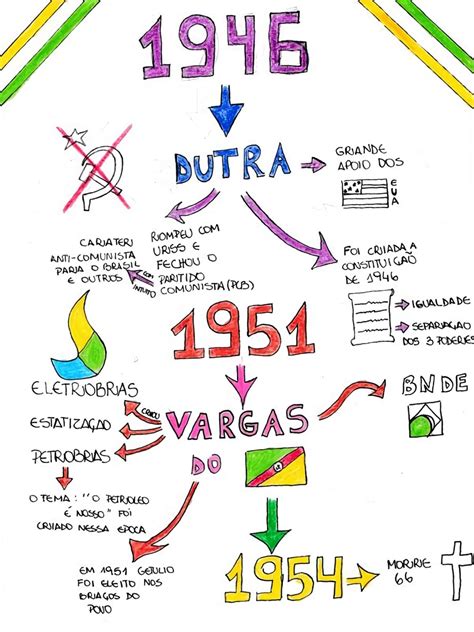 1946
DUTRA
GRANDE
APOIO DOS
EUA
ROMPEU COM
URSS E
FECHOU O
PARTIDO
COMUNISTA (PCB)
COM
INTUITO
CARATER
ANTI-COMUNISTA
PARA O BRASIL
E OUTROS
FOI CRIADA A
CONSTITUIÇÃO
DE 1946
IGUALDADE
SEPARAÇÃO
DOS 3 PODERES
1951
VARGAS
DO
CRIOU
ELETROBRAS
ESTATIZAÇÃO
PETROBRAS
O TEMA: "O PETROLEO
É NOSSO" FOI
CRIADO NESSA EPOCA
BNDE
EM 1951 GETULIO
FOI ELEITO NOS
BRAÇOS DO
POVO
1954
MORRE
66